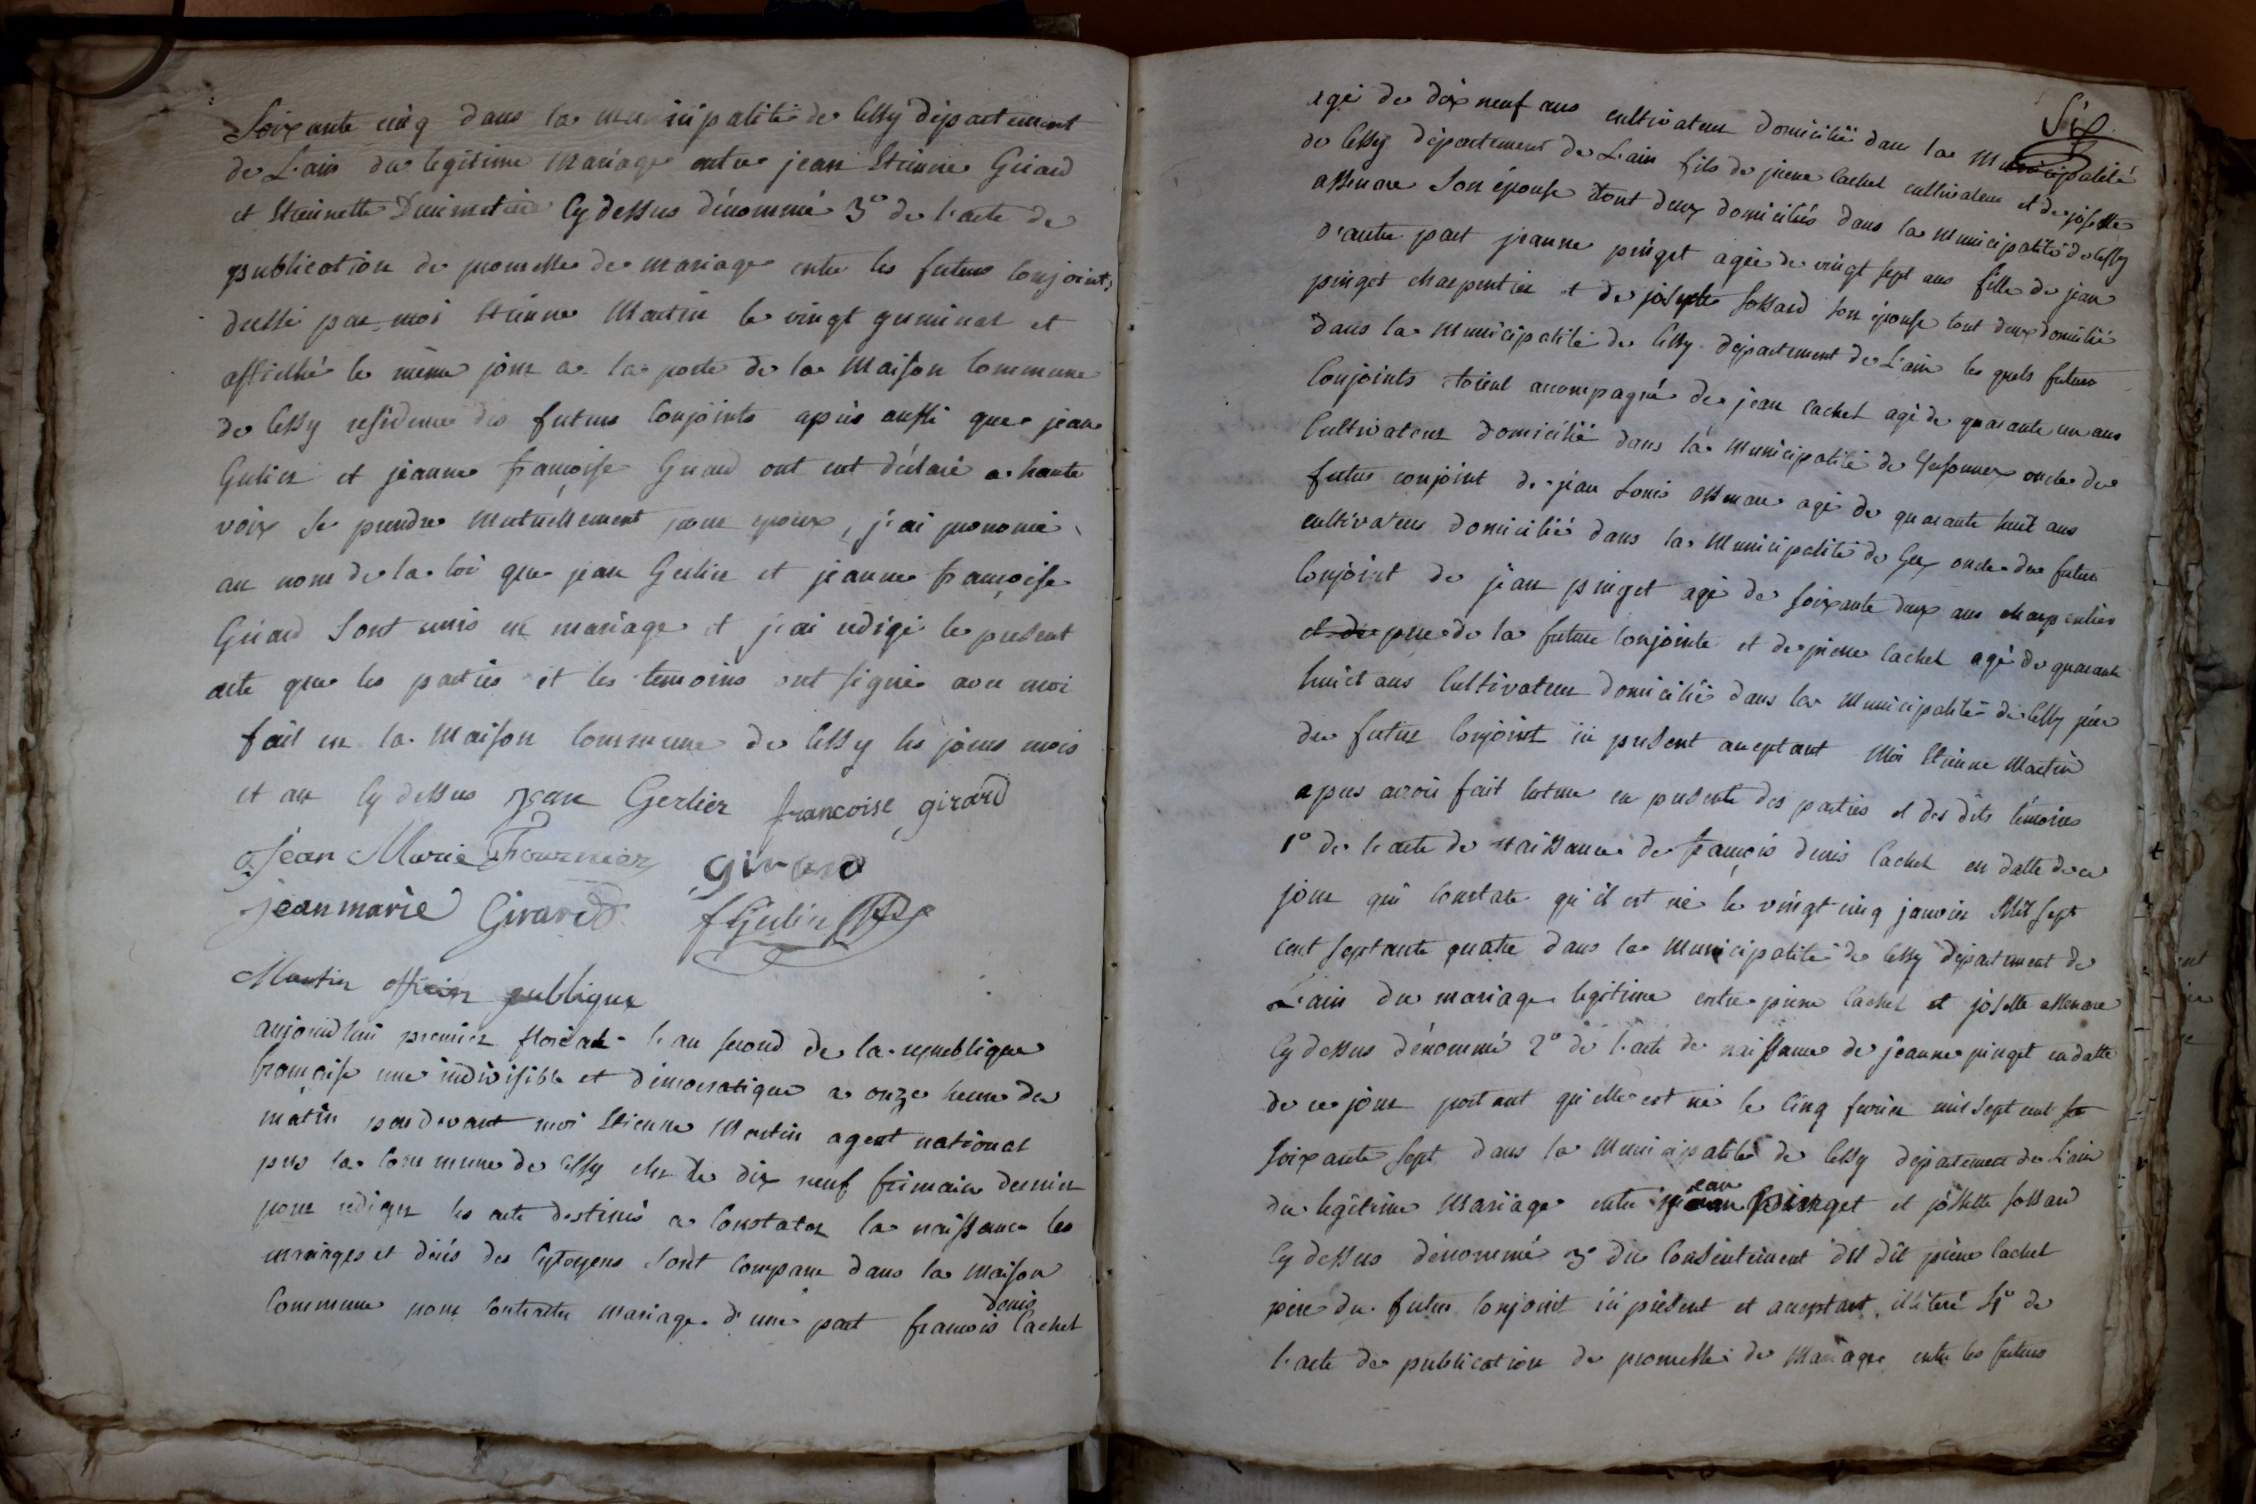 Soixante cinq dans la municipalité de Cessy département
de L'ain du legitime mariage entre jean Etienne Girard
et Etiennette Cy dessus dénommé 3° de l'acte de
publication de promesse de mariage entre les futurs Conjoints,
dressé par moi Etienne Martin le vingt germinal et
affiché le même jour a la porte de la Maison Commune
de Cessy residence des futurs Conjoints après aussi que jean
Gerlier et jeanne françoise Girard ont eut déclaré a haute
voix se prendre Mutuellement pour epoux, j'ai prononcé
au nom de la loi que jean Gerlier et jeanne françoise
Girard Sont unis en mariage et j'ai redigé le present
acte que les parties et les temoins ont signé avec moi
fait en la Maison Commune de Cessy les jours mois
et an Cy dessus jean Gerlier francoise girard
jean Marie Fournier girard
jean marie Girard f Gerlier
Martin officier publique
aujourd'hui premier floréal l'an second de la republique
françoise une indivisible et démocratique a onze heure du
matin pardevant moi Etienne Martin agent national
près la Commune de Cessy élu le dix neuf frimaire dernier
pour rediger les acte destinés a Constater la naissance les
mariages et décés des Cytoyens Sont Comparu dans la Maison
Commune pour Contracter mariage d'une part francois denis Cachet
Six
agé de dix neuf ans cultivateur domicilié dans la Municipalité
de Cessy département de L'ain fils de pierre Cachet cultivateur et de josette
assenare Son épouse tout deux domiciliés dans la municipalité de Cessy
d'autre part jeanne pinget agée de vingt sept ans fille de jean
pinget charpentier et de josephte sossard son épouse tout deux domicilié
dans la Municipalité de Cessy département de L'ain les quels futurs
Conjoints etoient accompagné de jean Cachet agé de quarante un ans
Cultivateur domicilié dans la Municipalité de oncle du
futur conjoint de jean Louis assenare agé de quarante huit ans
cultivateur domicilié dans la Municipalité de Gex oncle du futur
Conjoint de jean pinget agé de soixante deux ans charpentier
et de pere de la future Conjointe et de pierre Cachet agé de quarante
huict ans Cultivateur domicilié dans la Municipalité de Cessy pére
du futur Conjoint ici present aceptant Moi Etienne Martin
apres avoir fait lecture en presente des parties et des dits témoins
1° de l'acte de Naissance de françois denis Cachet en datte de ce
jour qui Constate qu'il est né le vingt cinq janvier Mil sept
cent septante quatre dans la Municipalité de Cessy département de
L'ain du mariage legitime entre pierre Cachet et josette assenare
Cy dessus dénommé 2° de l'acte de naissance de jeanne pinget en datte
de ce jour portant qu'elle est né le Cinq fevrier mil sept cent
soixante sept dans la Municipalité de Cessy département de L'ain
du legitime Mariage entre jean pinget et josette sossard
Cy dessus dénommé 3° du Consentement du dit pierre Cachet
pere du futur Conjoint ici présent et aceptant illiteré 4° de
l'acte de publication de promesse de Mariage entre les futurs